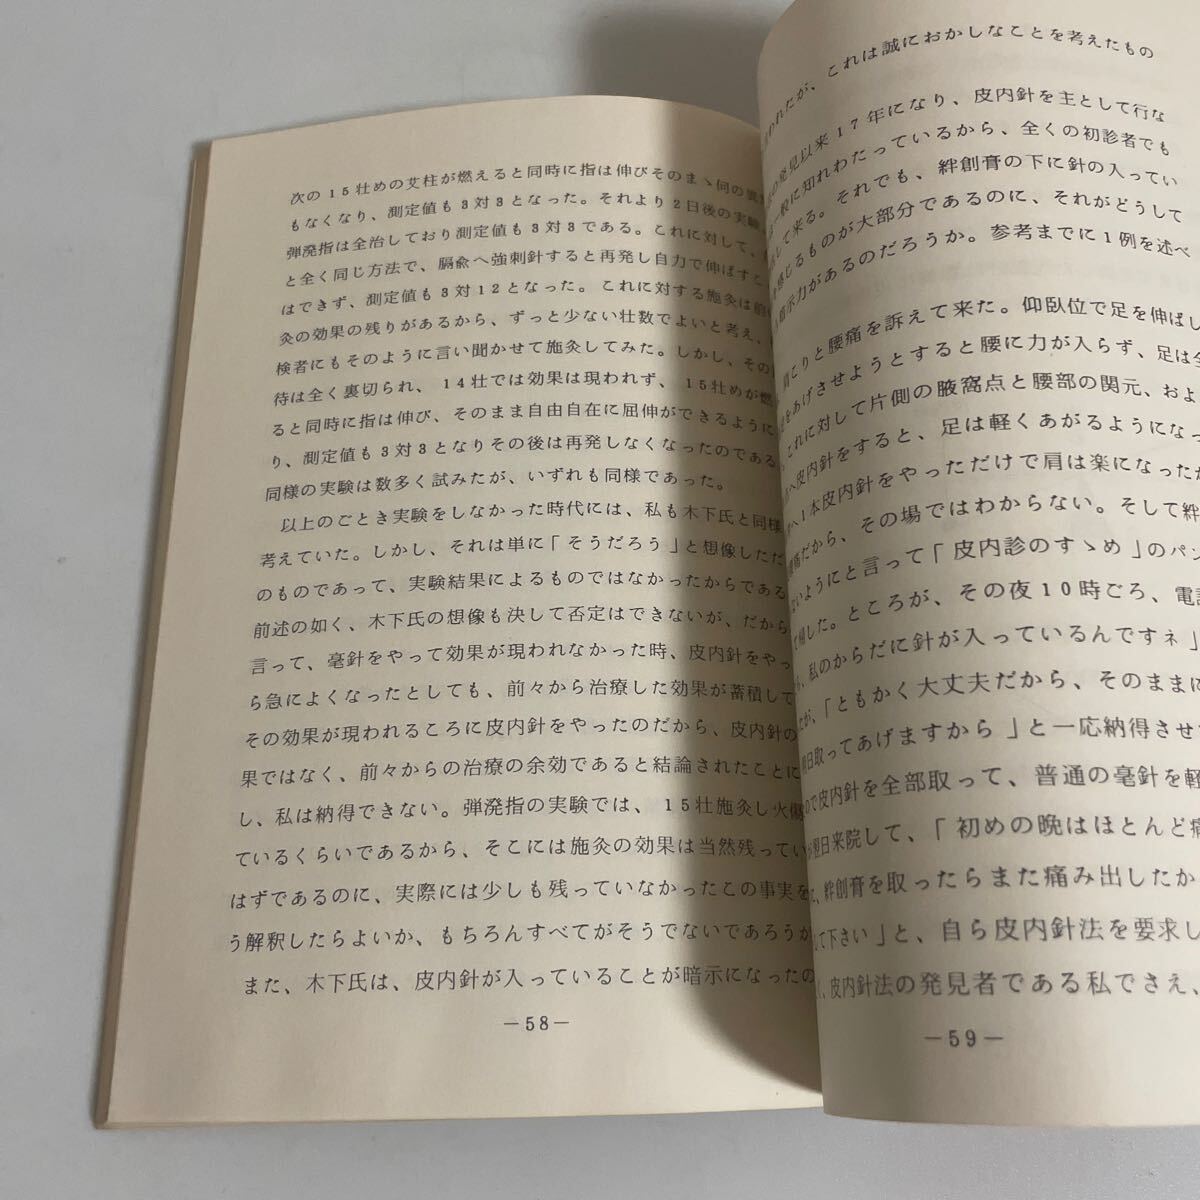 次の15壮めの艾柱が燃えると同時に指は伸びそのまゝ何の異
もなくなり、測定値も3対3となった。それより2日後の実
弾溌指は全治しており測定値も3対3である。これに対して、
と全く同じ方法で、膈兪へ強刺針すると再発し自力で伸ばすこ
はできず、測定値も3対12となった。これに対する施灸は前
灸の効果の残りがあるから、ずっと少ない壮数でよいと考え、
検者にもそのように言い聞かせて施灸してみた。しかし、その
待は全く裏切られ、14壮では効果は現われず、15壮めが燃
ると同時に指は伸び、そのまま自由自在に屈伸ができるように
り、測定値も3対3となりその後は再発しなくなったのである
同様の実験は数多く試みたが、いずれも同様であった。
以上のごとき実験をしなかった時代には、私も木下氏と同様
考えていた。しかし、それは単に「そうだろう」と想像しただ
のものであって、実験結果によるものではなかったからである
前述の如く、木下氏の想像も決して否定はできないが、だから
言って、毫針をやって効果が現われなかった時、皮内針をやっ
ら急によくなったとしても、前々から治療した効果が蓄積して
その効果が現われるころに皮内針をやったのだから、皮内針の
果ではなく、前々からの治療の余効であると結論されたことに
し、私は納得できない。弾溌指の実験では、15壮施灸し火傷
ているくらいであるから、そこには施灸の効果は当然残ってい
はずであるのに、実際には少しも残っていなかったこの事実を
う解釈したらよいか、もちろんすべてがそうでないであろうが
また、木下氏は、皮内針が入っていることが暗示になったの
—58—
われたが、これは誠におかしなことを考えたもの
の発見以来17年になり、皮内針を主として行な
一般に知れわたっているから、全くの初診者でも
して来る。それでも、絆創膏の下に針の入ってい
感じるものが大部分であるのに、それがどうして
暗示力があるのだろうか。参考までに1例を述べ
肩こりと腰痛を訴えて来た。仰臥位で足を伸ばし
をあげさせようとすると腰に力が入らず、足は全
これに対して片側の腋窩点と腰部の関元、およ
へ皮内針をすると、足は軽くあがるようになっ
へ1本皮内針をやっただけで肩は楽になったが
痛だから、その場ではわからない。そして絆
ないようにと言って「皮内診のすゝめ」のパン
て帰した。ところが、その夜10時ごろ、電話
、私のからだに針が入っているんですネ」
たが、「ともかく大丈夫だから、そのままに
日取ってあげますから」と一応納得させ
ので皮内針を全部取って、普通の毫針を軽
が翌日来院して、「初めの晩はほとんど痛
た、絆創膏を取ったらまた痛み出したか
して下さい」と、自ら皮内針法を要求し
、皮内針法の発見者である私でさえ、
—59—